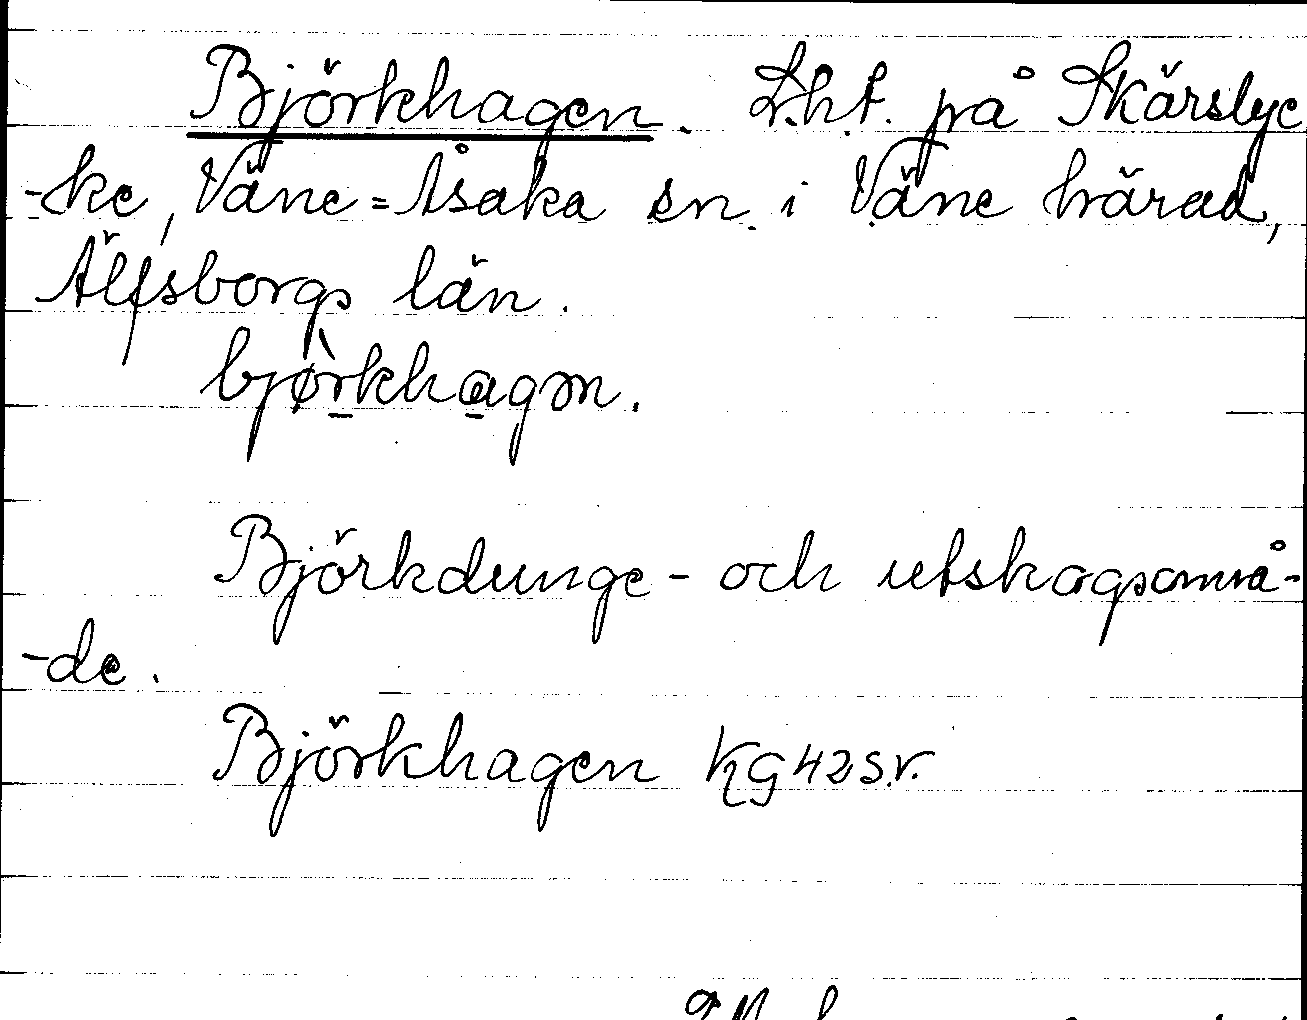 Björkhagen. L.h.t. på Skärslyc
-ke, Väne=Åsaka sn. i Väne härad,
Älfsborgs län.
björkhagən.
Björkdunge- och utskogsområ-
-de.
Björkhagen KG42s.v.